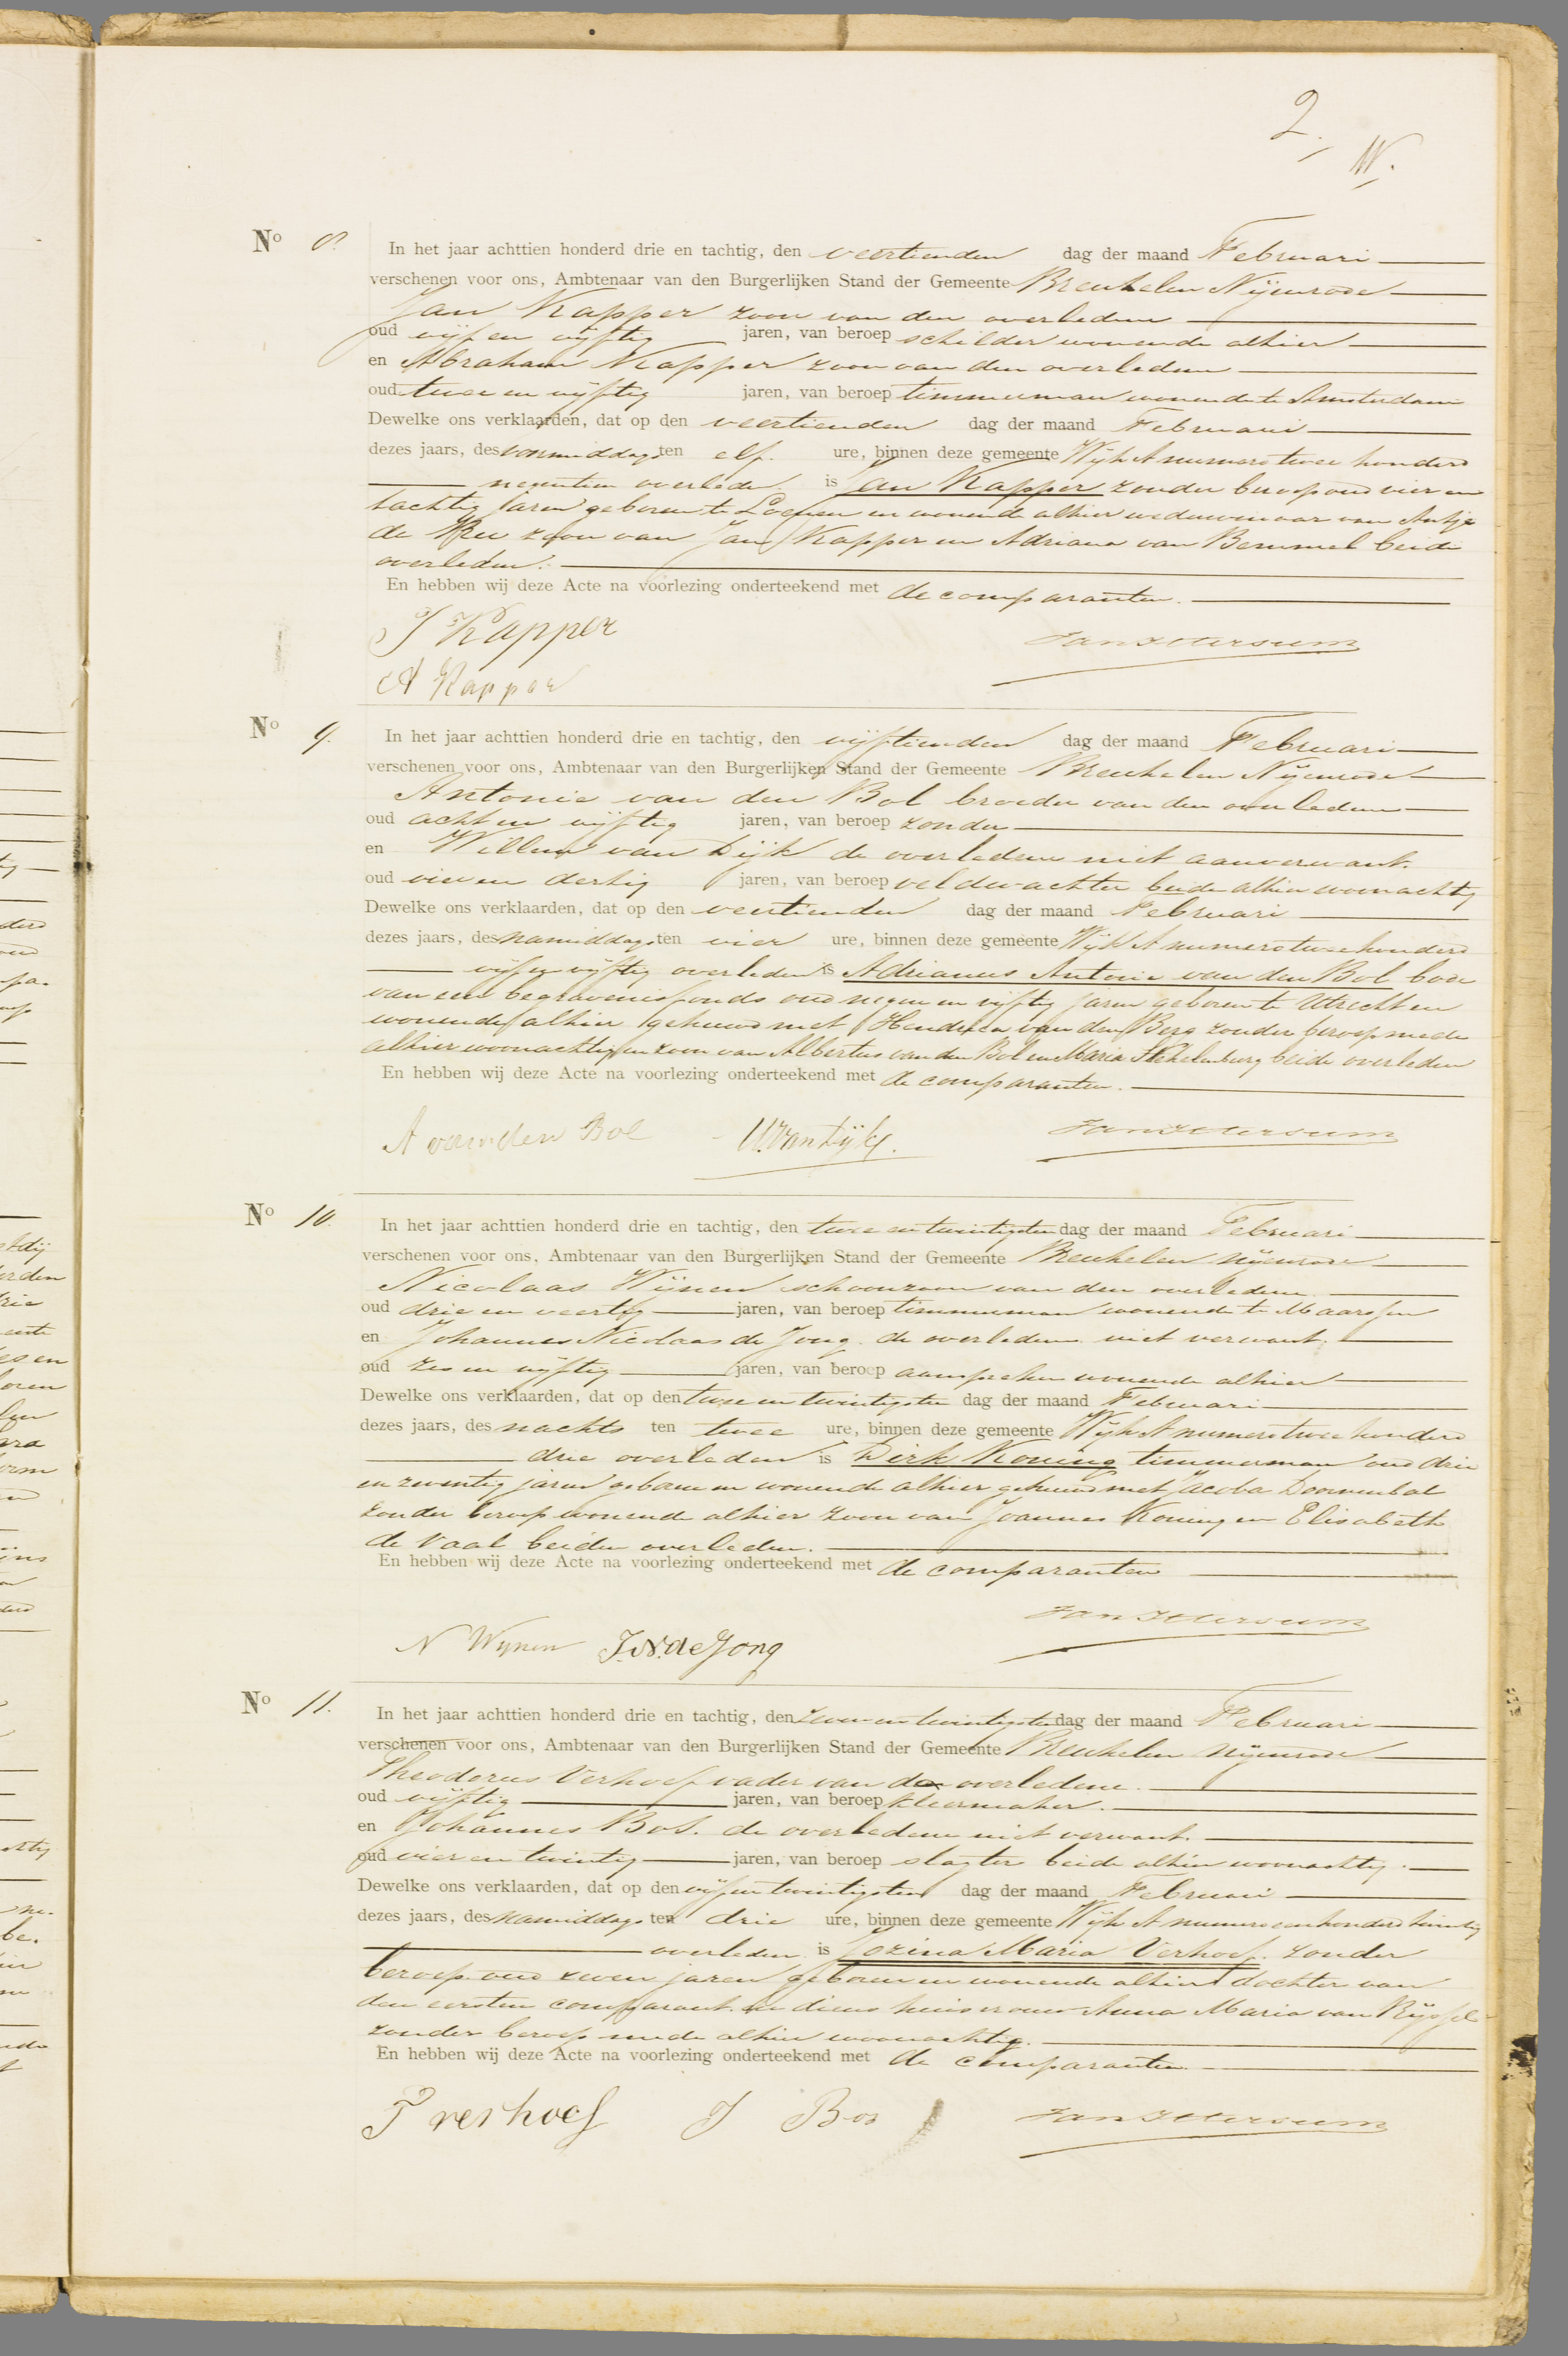 2.
W.
No 8. In het jaar achttien honderd drie en tachtig, den veertienden dag der maand Februari
verschenen voor ons, Ambtenaar van den Burgerlijken Stand der Gemeente Breukelen Nijenrode
Jan Kapper zoon van den overledene
oud vijf en vijftig jaren, van beroep schilder wonende alhier
en Abraham Kapper zoon van den overledene
oud twee en vijftig jaren, van beroep timmerman wonende te Amsterdam
Dewelke ons verklaarden, dat op den veertienden dag der maand Februari
dezes jaars, des voormiddags ten elf ure, binnen deze gemeente Wijk A numero twee honderd
negentien overleden is Jan Kapper zonder beroep oud vier en
tachtig jaren geboren te Loenen en wonende alhier weduwenaar van Antje
de Ree zoon van Jan Kapper en Adriana van Bemmel beide
overleden.
En hebben wij deze Acte na voorlezing onderteekend met de comparanten.
J Kapper
A Kapper
No 9. In het jaar achttien honderd drie en tachtig, den vijftienden dag der maand Februari
verschenen voor ons, Ambtenaar van den Burgerlijken Stand der Gemeente Breukelen Nijenrode
Antonie van den Bol broeder van den overledene
oud acht en vijftig jaren, van beroep zonder
en Willem van Dijk de overledene niet aanverwant.
oud vier en dertig jaren, van beroep veldwachter beide alhier woonachtig
Dewelke ons verklaarden, dat op den veertienden dag der maand Februari
dezes jaars, des namiddags ten vier ure, binnen deze gemeente Wijk A numero twee honderd
vijf en vijftig overleden is Adrianus Antonie van den Bol bode
van een begrafenisfonds oud negen en vijftig jaren geboren te Utrecht en
wonende alhier gehuwd met Hendrica van den Berg zonder beroep mede
alhier woonachtig en zoon van Albertus van den Bol en Maria Stekelenburg beide overleden
En hebben wij deze Acte na voorlezing onderteekend met de comparanten.
A van den Bol W. van Dijk.
No 10. In het jaar achttien honderd drie en tachtig, den twee en twintigsten dag der maand Februari
verschenen voor ons, Ambtenaar van den Burgerlijken Stand der Gemeente Breukelen Nijenrode
Nicolaas Wijnen schoonzoon van den overledene
oud drie en veertig jaren, van beroep timmerman wonende te Maarssen
en Johannes Nicolaas de Jong de overledene niet verwant.
oud zes en vijftig jaren, van beroep aanspreker wonende alhier
Dewelke ons verklaarden, dat op den twee en twintigsten dag der maand Februari
dezes jaars, des nachts ten twee ure, binnen deze gemeente Wijk A numero twee honderd
drie overleden is Dirk Koning timmerman oud drie
en zeventig jaren geboren en wonende alhier gehuwd met Jacoba Doornenbal
zonder beroep wonende alhier zoon van Joannes Koning en Elisabeth
de Vaal beiden overleden.
En hebben wij deze Acte na voorlezing onderteekend met de comparanten
N Wynen J.N. de Jong
No 11. In het jaar achttien honderd drie en tachtig, den zeven en twintigsten dag der maand Februari
verschenen voor ons, Ambtenaar van den Burgerlijken Stand der Gemeente Breukelen Nijenrode
Theodorus Verhoef vader van de overledene.
oud vijftig jaren, van beroep kleermaker.
en Johannes Bos. de overledene niet verwant.
oud vier en twintig jaren, van beroep slagter beide alhier woonachtig.
Dewelke ons verklaarden, dat op den vijf en twintigsten dag der maand Februari
dezes jaars, des namiddags ten drie ure, binnen deze gemeente Wijk A numero een honderd twintig
overleden is Jozina Maria Verhoef. zonder
beroep oud zeven jaren geboren en wonende alhier dochter van
den eersten comparant en diens huisvrouw Anna Maria van
zonder beroep mede alhier woonachtig.
En hebben wij deze Acte na voorlezing onderteekend met de comparanten
T verhoef J Bos